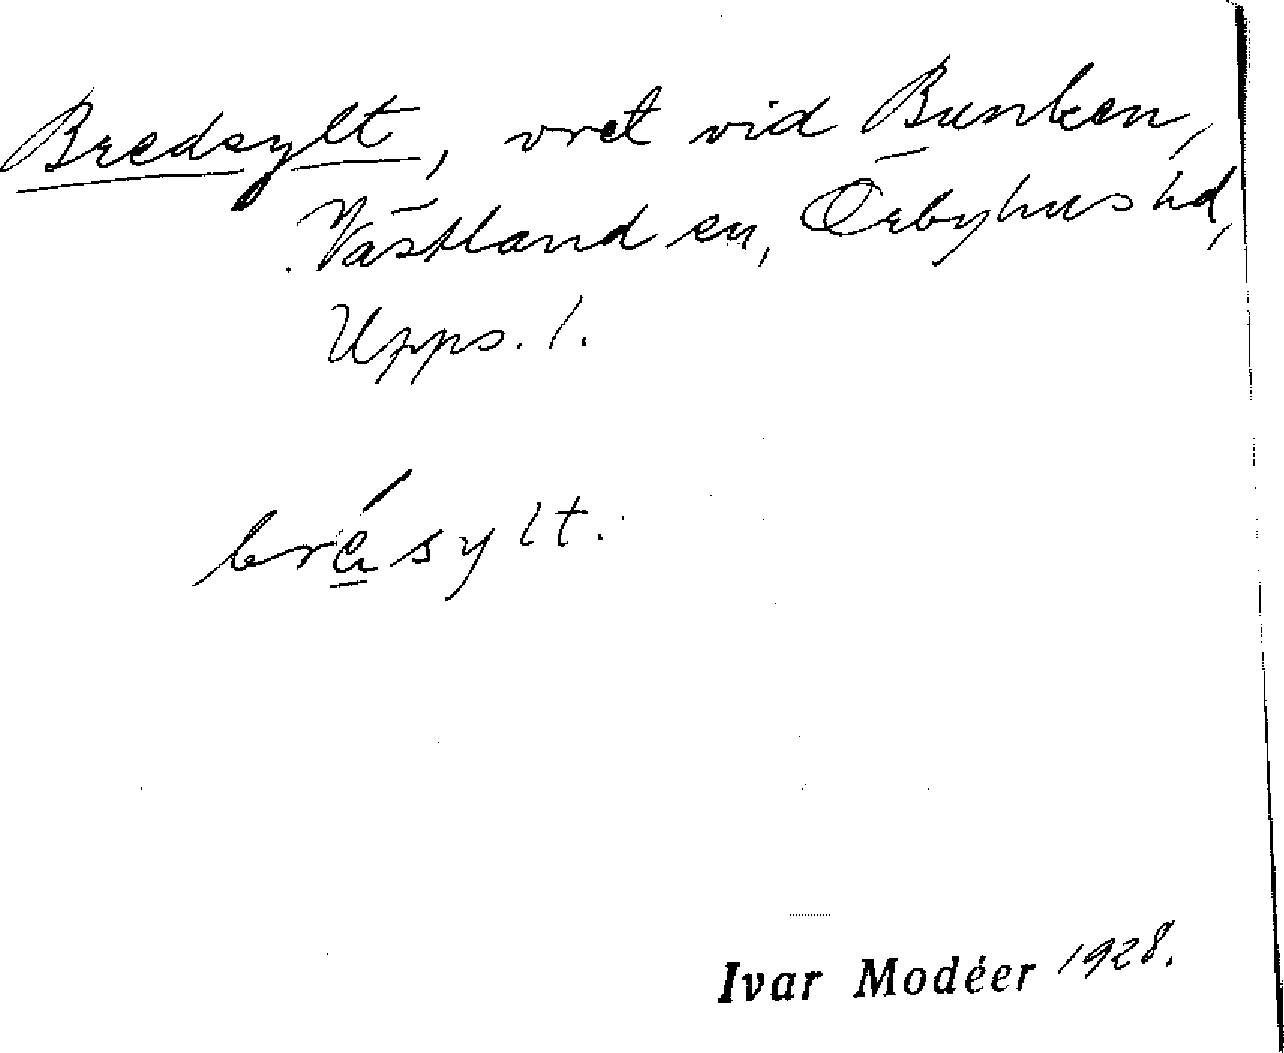 Bredsylt, vret vid Bunken,
Västland sn, Örbyhus hd,
Upps. l.
brésylt.
Ivar Modéer 1928.